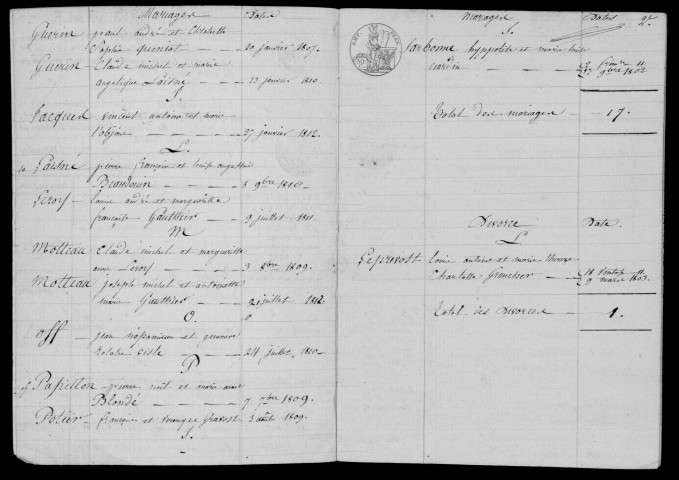 Mariages Dates
Guerin paul andré et Elisabette
Sophie quentot 20 janvier 1807.
Guerin Claude michel et marie
angelique Laisné 23 janvier 1810.
J.
Jacquel vincent antoine et marie
27 janvier 1812.
L.
10 Laisné pierre françois et louise augustine
Beaudouin 8 9bre 1810
Leroy louis andré et marguerite
françoise Gautthier 9 juillet 1811.
M
Motteau Claude michel et marguerite
anne Leroy 3 8bre 1809.
Motteau joseph michel et antoinette
marie Gautthier 21 juillet 1812
O.
Off jean nepomucen et genevieve
24 juillet 1810
P
15 Papillon pierre noël et marie anne
Blondé 7 7bre 1809.
Potier françois et veronique Prevost 3 août 1809.
S.
Mariages Dates 2e.
S.
Sarbonne hypolite et marie louise
nardin 2 frimre 11
9bre 1802
Total des mariages 17.
Divorce Date.
L
Leprevost louis antoine et marie therese
Charlotte francher 18 ventose 11
9 mars 1803.
Total des Divorces 1.